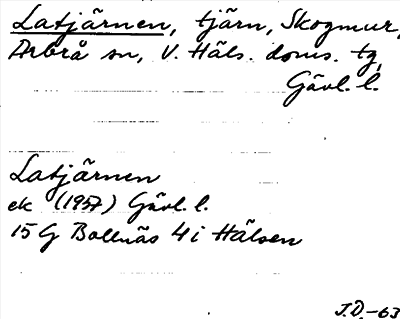 Latjärnen, tjärn, Skogmur,
Arbrå sn, V. Häls. doms. tg,
Gävl. l.
Latjärnen
ek (1957) Gävl. l.
15 G Bollnäs 4 i Hälsen
J.D. -63